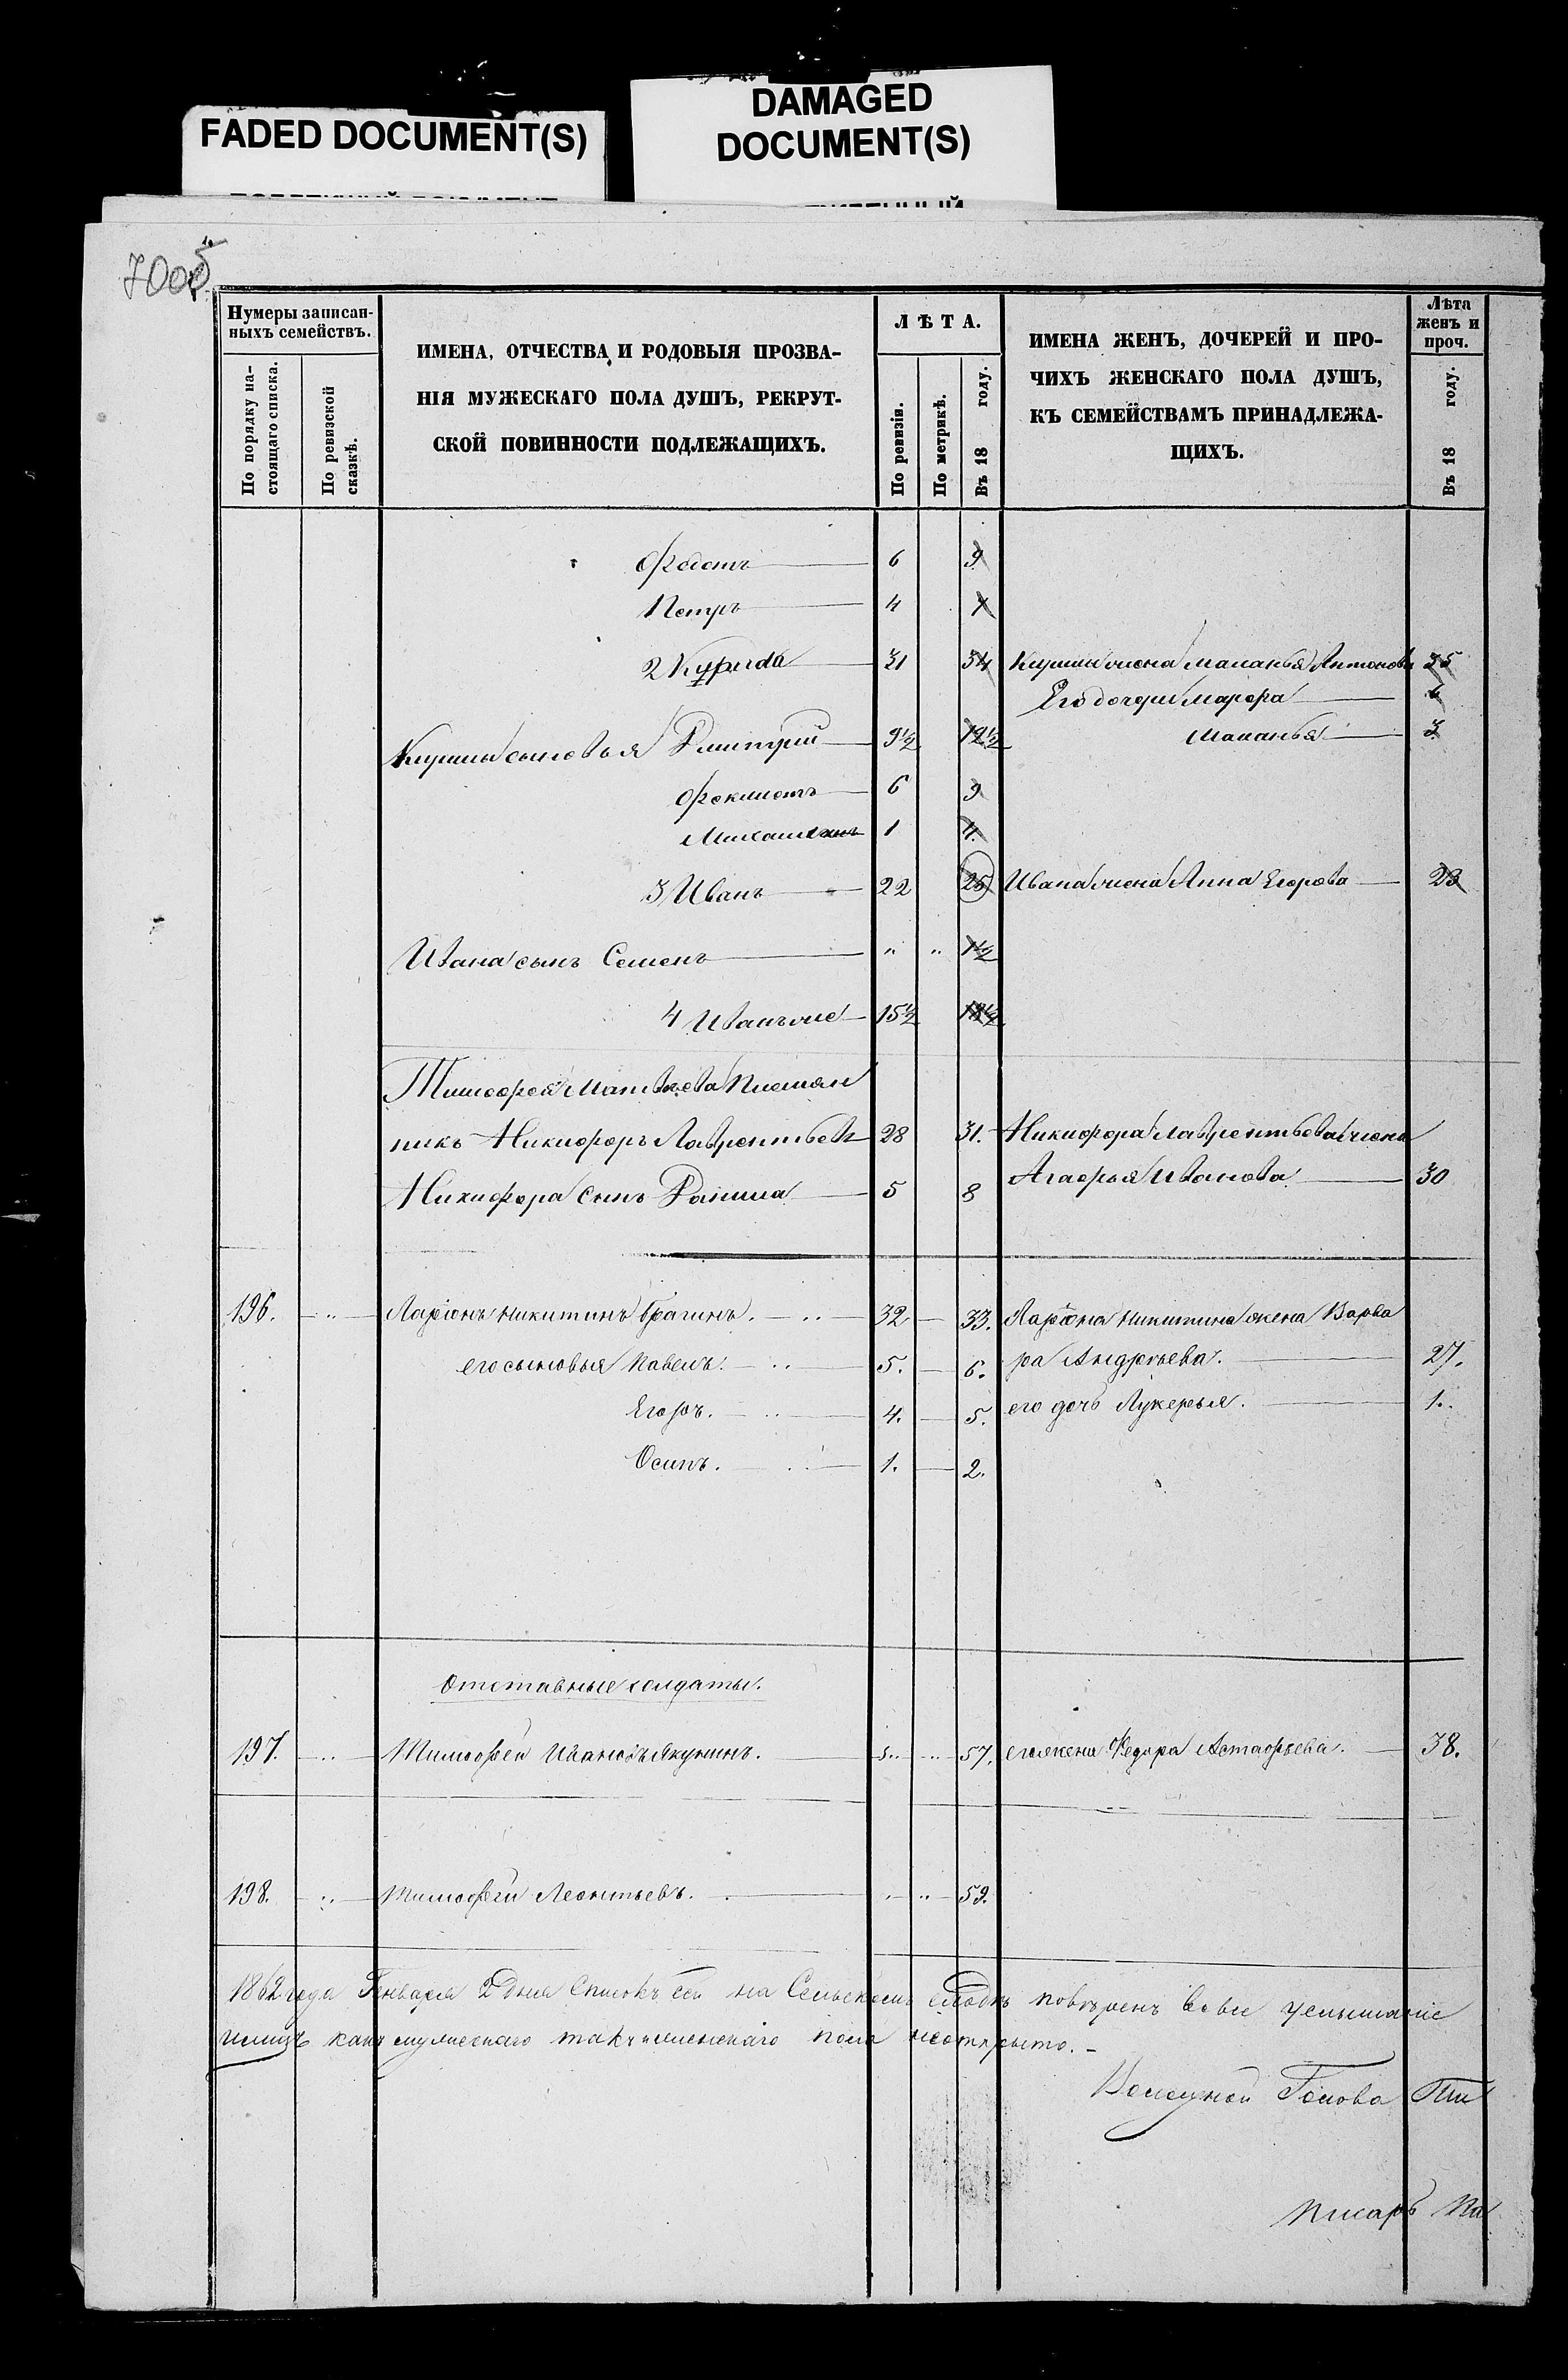 FADED DOCUMENT(S)
DAMAGED
DOCUMENT(S)
7005
Нумеры записан-
ныхъ семействъ.
По порядку на-
стоящаго списка.
По ревизской
сказкѣ.
ИМЕНА, ОТЧЕСТВА И РОДОВЫЯ ПРОЗВА-
НІЯ МУЖЕСКАГО ПОЛА ДУШЪ, РЕКРУТ-
СКОЙ ПОВИННОСТИ ПОДЛЕЖАЩИХЪ.
ЛѢТА.
По ревизіи.
По метрикѣ.
Въ 18 году.
ИМЕНА ЖЕНЪ, ДОЧЕРЕЙ И ПРО-
ЧИХЪ ЖЕНСКАГО ПОЛА ДУШЪ,
КЪ СЕМЕЙСТВАМЪ ПРИНАДЛЕЖА-
ЩИХЪ.
Лѣта
женъ и
проч.
Въ 18 году.
Федотъ 6 9
Петръ 4 7
2 31 34 жена Маланья Антонова 35
Его дочери Марфа 6
сыновья Дмитрий 9½ 12½ Маланья 3
Феклистъ 6 9
1 4
3 Иванъ 22 25 Ивана жена Анна Егорова 23
Ивана сынъ Семенъ " " 1½
4 Иванъ же 15½ 18½
Тимофея Матвѣева Племян
никъ Никифоръ Лаврентьевъ 28 31. Никифора Лаврентьева жена
Агафья Иванова 30
Никифора сынъ Данила 5 8
196. Ларіонъ Никитинъ Брагинъ. 32 33. Ларіона Никитина жена Варва
ра Андреева. 27.
его сыновья Павелъ. 5. 6.
Егоръ. 4. 5. его дочь Лукерья. 1.
Осипъ. 1. 2.
Отставные солдаты.
197. Тимофей Ивановъ Якунинъ. 57. его жена Федора Астафьева. 38.
198. Тимофей Леонтьевъ. 59.
1862 года Генваря 2 дня Списокъ сей на Сельскомъ сходѣ повѣренъ
какъ мужескаго такъ и женскаго пола неоткрыто.
Волостной Голова
Писарь Па